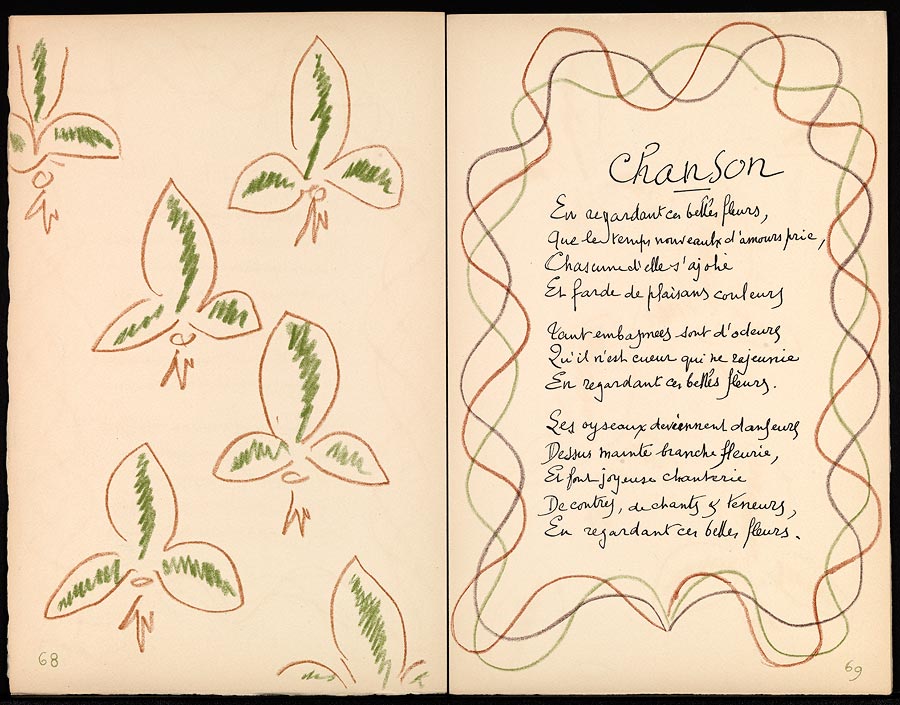 68
Chanson
En regardant ces belles fleurs,
Que le temps nouveaulx d'amours prie,
Chascune d'elle s'ajolie
Et farde de plaisans couleurs
Tant embasmees sont d'odeurs
Qu'il n'est cueur qui ne rajeunie
En regardant ces belles fleurs.
Les oyseaux deviennent danseurs
Dessus mainte branche fleurie,
Et font joyeuse chanterie
De contres, de chants & teneurs,
En regardant ces belles fleurs.
69